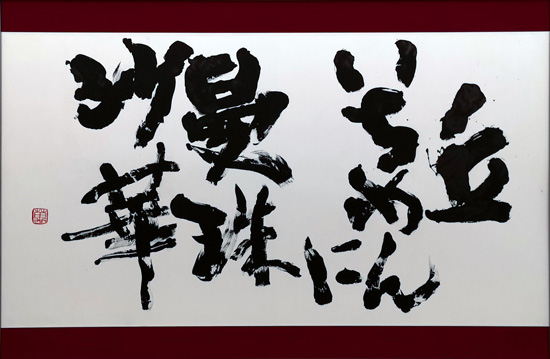 丘
いちめん
に
曼珠
沙華